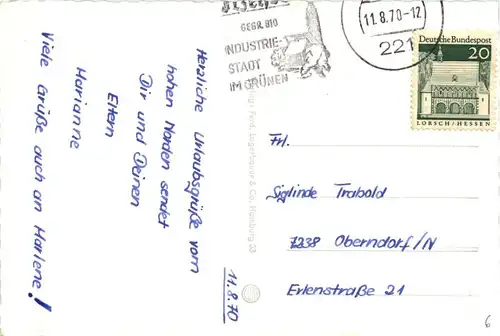 Herzliche Urlaubsgrüße vom
hohen Norden sendet
Dir und Deinen
Eltern
Marianne
Viele Grüße auch an Marlene!
11.8.70
GEGR. 810
INDUSTRIE-
STADT
IM GRÜNEN
11.8.70-12
221
Deutsche Bundespost
20
LORSCH/HESSEN
Frl.
Siglinde Trabold
7238 Oberndorf/N
Erlenstraße 21